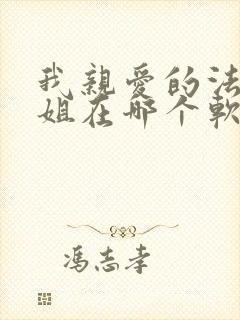 我親愛的法
姐在哪个軟
馮志孝